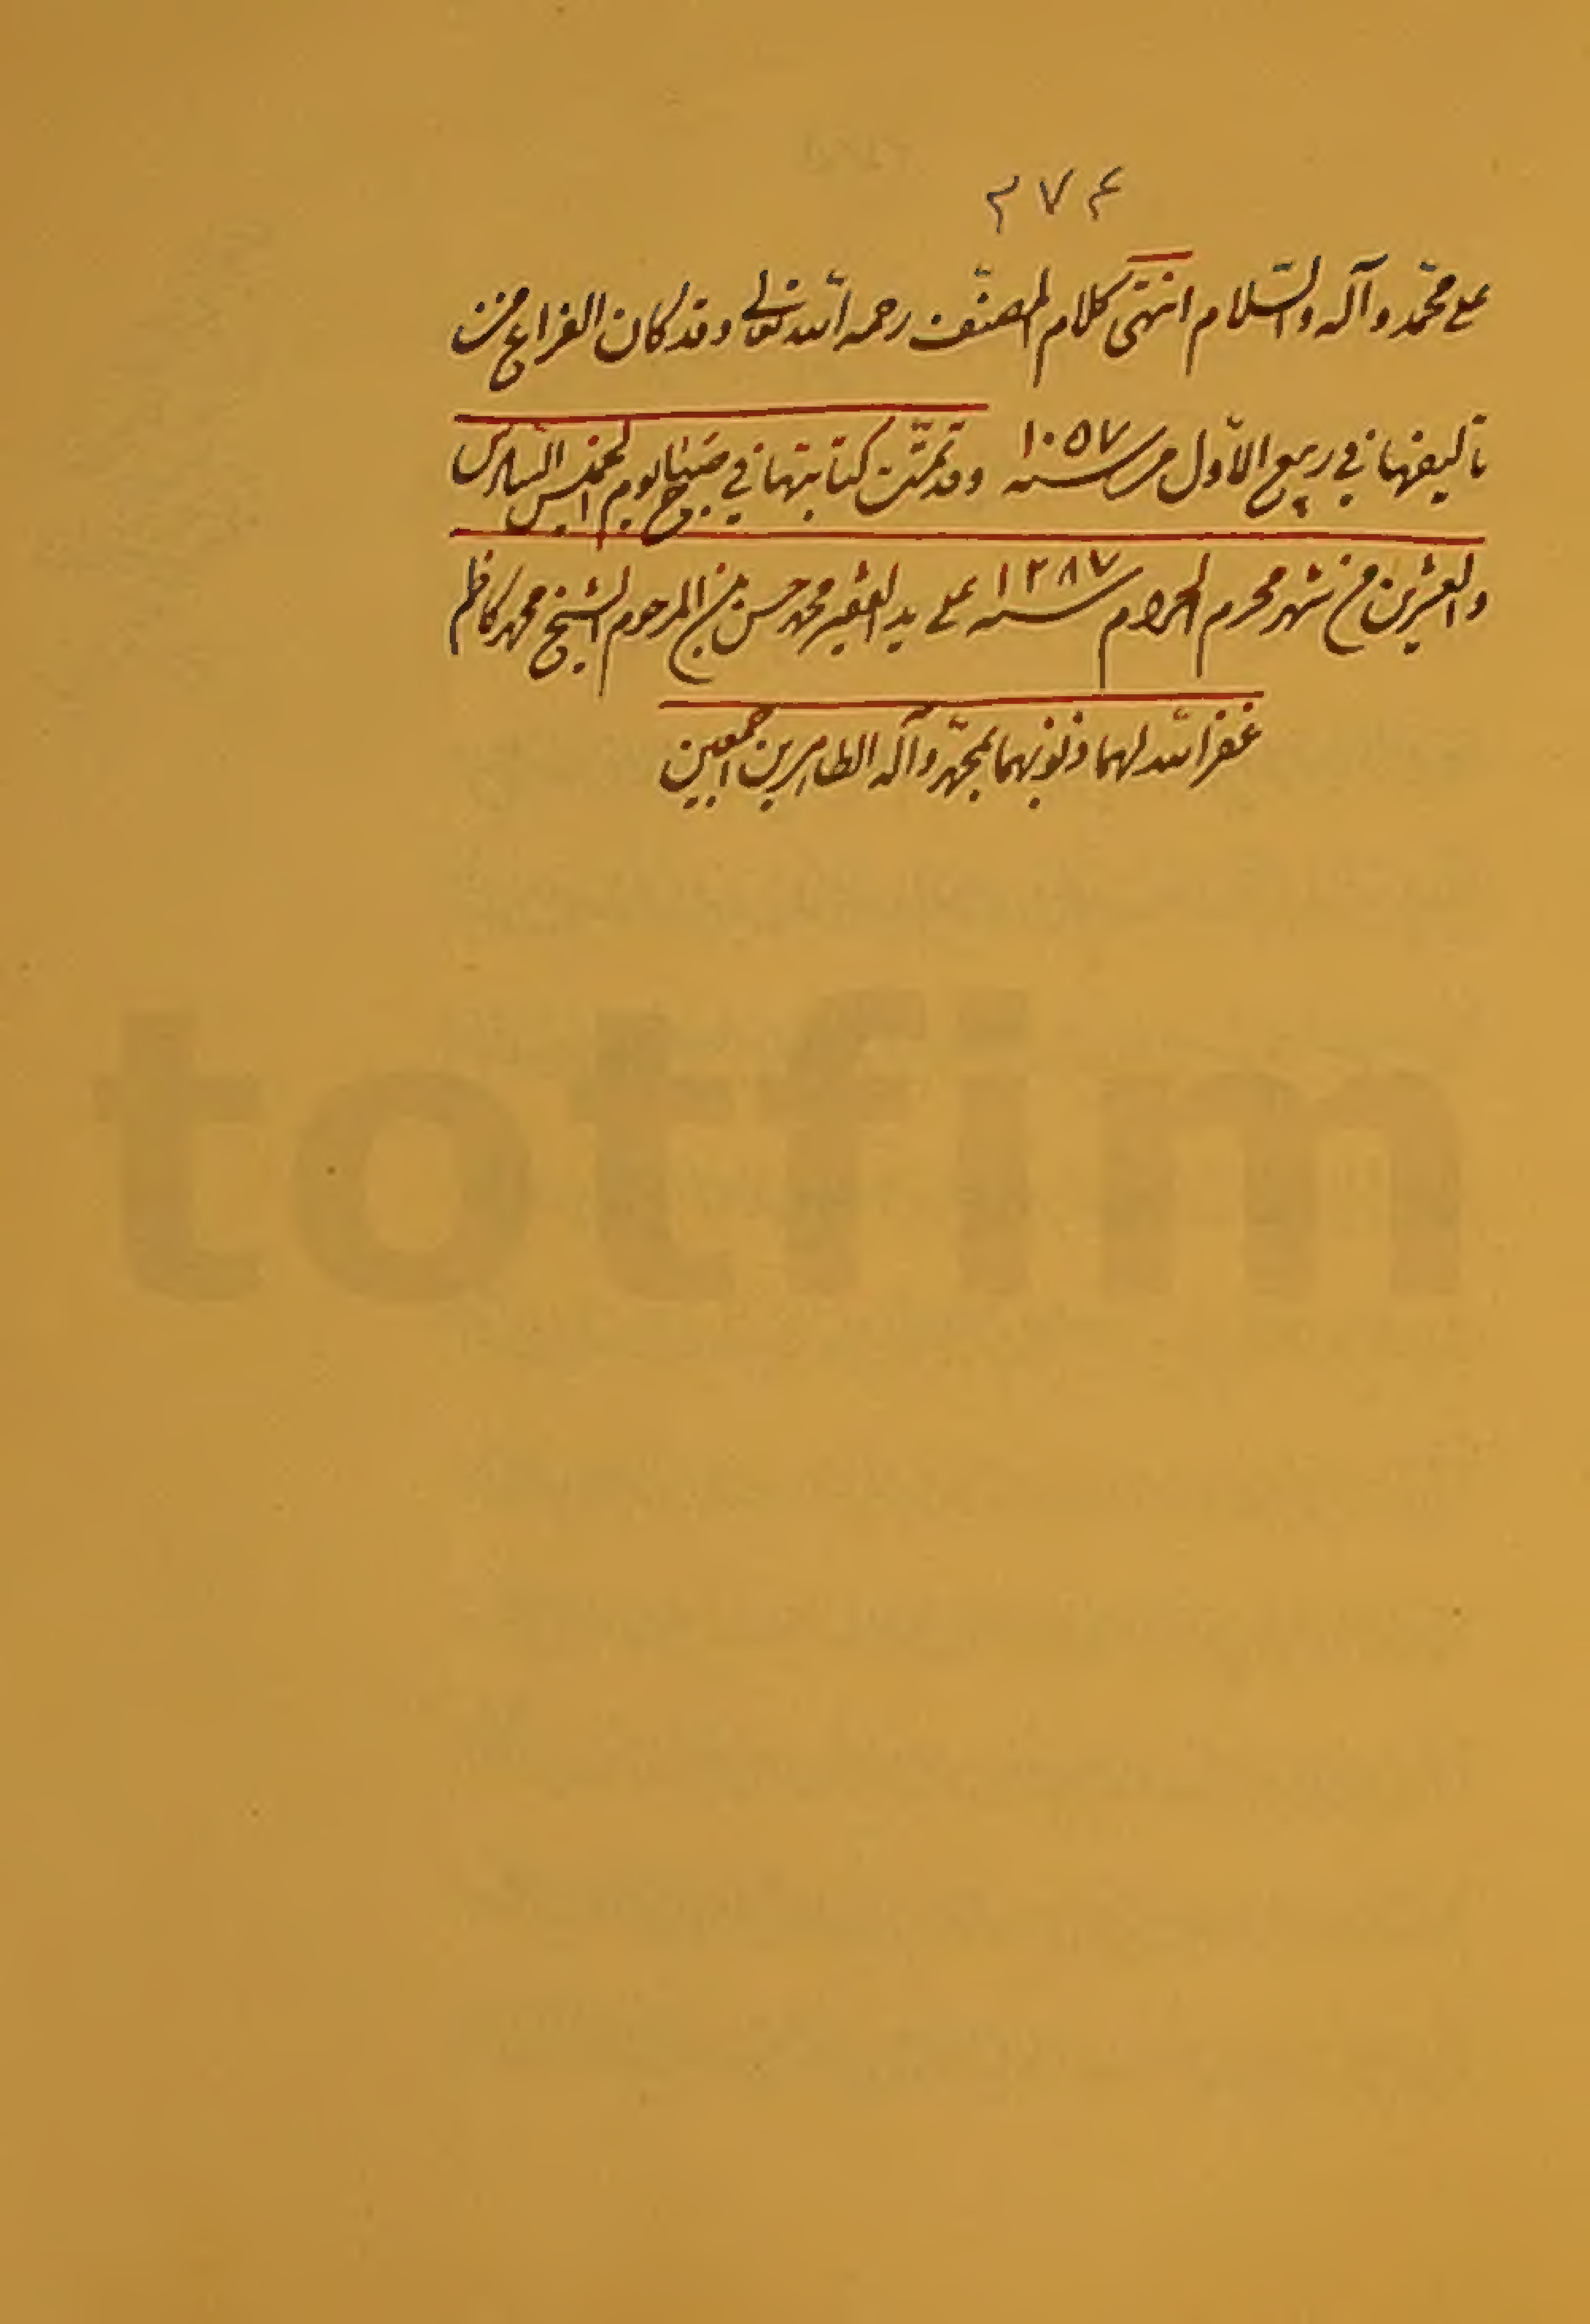 ۴۷۴
على محمّد وآله والسّلام انتهى كلام المصنّف رحمه الله تعالى وقد كان الفراغ من
تأليفها في ربيع الأوّل من سنه ١٠٥٧ وقد تمّت كتابتها في صباح يوم الخميس السّادس
والعشرين من شهر محرم الحرام سنه ١٢٨٧ على يد الفقير محمد حسن بن المرحوم الشيخ محمد كاظم
غفر الله لهما ذنوبهما بمحمّد وآله الطاهرين اجمعين
totfim